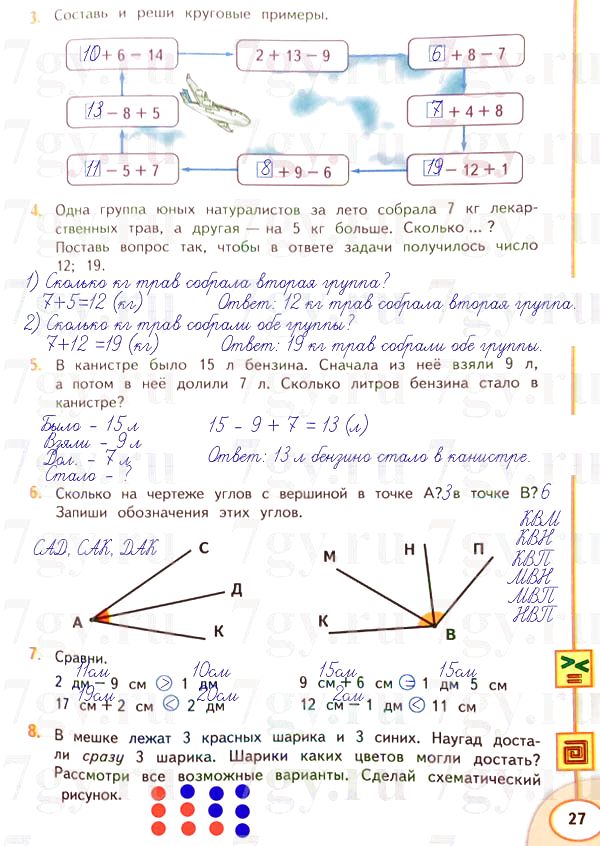 3. Составь и реши круговые примеры.
10 + 6 − 14
2 + 13 − 9
6 + 8 − 7
13 − 8 + 5
7 + 4 + 8
11 − 5 + 7
8 + 9 − 6
19 − 12 + 1
4. Одна группа юных натуралистов за лето собрала 7 кг лекар-
ственных трав, а другая — на 5 кг больше. Сколько ... ?
Поставь вопрос так, чтобы в ответе задачи получилось число
12; 19.
1) Сколько кг трав собрала вторая группа?
7+5=12 (кг) Ответ: 12 кг трав собрала вторая группа.
2) Сколько кг трав собрали обе группы?
7+12 =19 (кг) Ответ: 19 кг трав собрали обе группы.
5. В канистре было 15 л бензина. Сначала из неё взяли 9 л,
а потом в неё долили 7 л. Сколько литров бензина стало в
канистре?
Было – 15 л 15 – 9 + 7 = 13 (л)
Взяли – 9 л
Дол. – 7 л Ответ: 13 л бензино стало в канистре.
Стало – ?
6. Сколько на чертеже углов с вершиной в точке А? 3 в точке В? 6
Запиши обозначения этих углов.
САД, САК, ДАК
КВМ
КВН
КВП
МВН
МВП
НВП
С
Д
А
К
М
Н
П
К
В
7. Сравни.
11см 10см 15см 15см
2 дм − 9 см > 1 дм 9 см + 6 см = 1 дм 5 см
19см 20см 2см
17 см + 2 см < 2 дм 12 см − 1 дм < 11 см
8. В мешке лежат 3 красных шарика и 3 синих. Наугад доста-
ли сразу 3 шарика. Шарики каких цветов могли достать?
Рассмотри все возможные варианты. Сделай схематический
рисунок.
27
7gy.ru